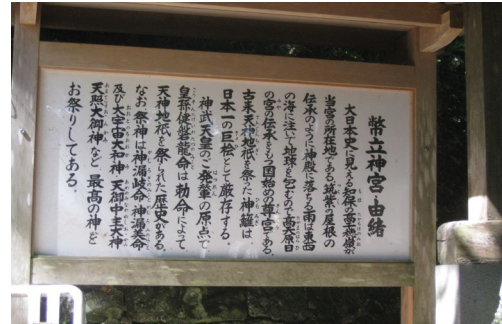 幣立神宮由緒
大日本史に見える知保の高千穂嶺が
当宮の所在地である。筑紫の屋根の
伝承のように神殿に落ちる雨は東西
の海に注いで地球を包むので高天原日
の宮の伝承をもつ国始めの尊宮である。
古来天神地祇を祭った神籬は
日本一の巨桧として厳存する。
神武天皇のご発輦の原点で
皇孫健磐龍命は勅命によって
天神地祇を祭られた歴史がある。
なお、祭神は神漏岐命・神漏美命
及び大宇宙大和神・天御中主大神
天照大御神など最高の神を
お祭りしてある。